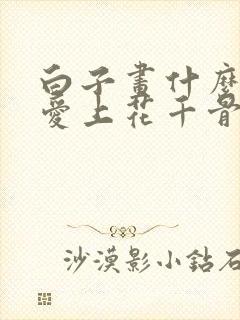 白子畫什麼
愛上花千骨
沙漠影小鉆石